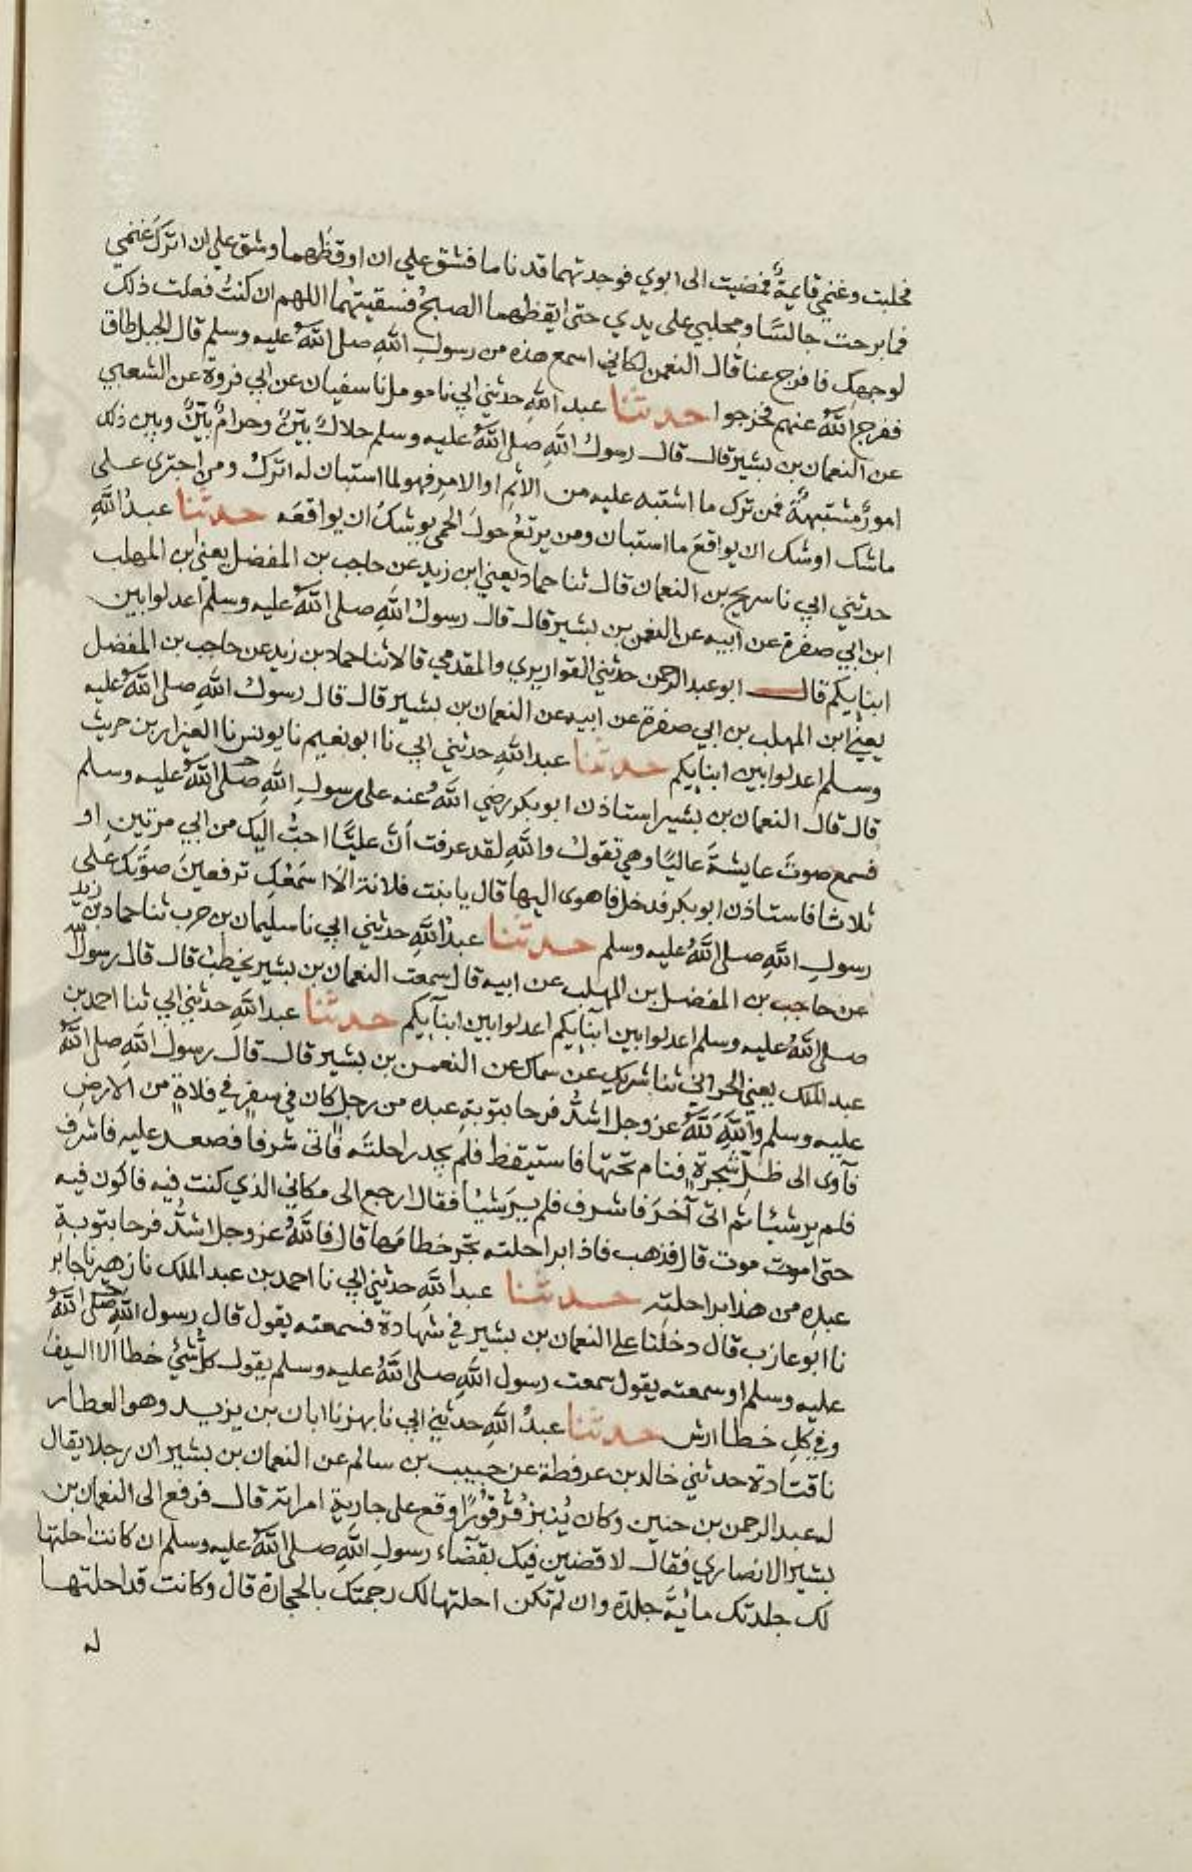 فحلبت وغنمي قايمة فمضيت الى ابوي فوجدتهما قد ناما فشق علي ان اوقظهما وشق علي ان اترك غنمي
فما برحت جالسًا ومحلبي على يدي حتى ايقظهما الصبحُ فسقيتهما اللهم ان كنتُ فعلت ذلك
لوجهك فافرج عنا قال النعمن لكاني اسمع هذه من رسول اللهِ صلى اللهُ عليه وسلم قال الجبل طاق
ففرج اللهُ عنهم فخرجوا حدثنا عبد اللهِ حدثني ابي نا مومل نا سفيان عن ابي فروة عن الشعبي
عن النعمان بن بشير قال قال رسولُ اللهِ صلى اللهُ عليه وسلم حلالٌ بيّنٌ وحرامٌ بيّنٌ وبين ذلك
امورٌ مشتبهةٌ فمن ترك ما اشتبه عليه من الاثمِ او الامرِ فهو لما استبان له اتركُ ومن اجترى على
ماشك اوشك ان يواقعَ ما استبان ومن يرتعُ حولَ الحمى يوشكُ ان يواقعَه حدثنا عبدُ اللهِ
حدثني ابي نا سريج بن النعمان قال ثنا حماد يعني ابن زيد عن حاجب بن المفضل يعني ابن المهلب
ابن ابي صفرة عن ابيه عن النعمن بن بشير قال قال رسولُ اللهِ صلى اللهُ عليه وسلم اعدلوا بين
ابنايكم قال ابو عبد الرحمن حدثني القواريري والمقدمي قالا ثنا حماد بن زيد عن حاجب بن المفضل
يعني ابن المهلب بن ابي صفرة عن ابيه عن النعمان بن بشير قال قال رسولُ اللهِ صلى اللهُ عليه
وسلم اعدلوا بين ابنايكم حدثنا عبد اللهِ حدثني ابي نا ابو نعيم نا يونس نا العيزار بن حريث
قال قال النعمان بن بشير استاذن ابو بكر رضي اللهُ عنه على رسولِ اللهِ صلى اللهُ عليه وسلم
فسمع صوتَ عايشةَ عاليًا وهي تقولُ واللهِ لقد عرفت أنَّ عليًّا احبُّ اليك من ابي مرتين او
ثلاثا فاستاذن ابو بكر فدخل فاهوى اليها قال يا بنت فلانة الا اسمعُكِ ترفعينَ صوتَكِ على
رسولِ اللهِ صلى اللهُ عليه وسلم حدثنا عبدُ اللهِ حدثني ابي نا سليمان بن حرب ثنا حماد بن زيد
عن حاجب بن المفضل بن المهلب عن ابيه قال سمعت النعمان بن بشير يخطبُ قال قال رسولُ الله
صلى اللهُ عليه وسلم اعدلوا بين ابنايكم اعدلوا بين ابنآيكم حدثنا عبد اللهِ حدثني ابي ثنا احمد بن
عبد الملك يعني الحراني ثنا شريك عن سماك عن النعمن بن بشير قال قال رسول اللهِ صلى اللهُ
عليه وسلم واللهِ للهُ عز وجل اشدُّ فرحا بتوبةِ عبده من رجلٍ كان في سفرٍ في فلاةٍ من الارضِ
فآوى الى ظلِّ شجرةٍ فنام تحتها فاستيقظ فلم يجد راحلتَه فاتى شرفاً فصعد عليه فاشرف
فلم ير شيئا ثم اتى آخرَ فاشرف فلم يرَ شيئا فقال ارجع الى مكاني الذي كنت فيه فاكون فيه
حتى اموت موت قال فذهب فاذا براحلته تجر خطامها قال فاللهُ عز وجل اشدُّ فرحا بتوبةِ
عبدِه من هذا براحلتِه حدثنا عبد اللهِ حدثني ابي نا احمد بن عبد الملك نا زهير نا جابر
نا ابو عازب قال دخلنا على النعمان بن بشير في شهادة فسمعته يقول قال رسول اللهِ صلى اللهُ
عليه وسلم او سمعته يقول سمعت رسول اللهِ صلى اللهُ عليه وسلم يقول كلُّ شيءٍ خطا الا السيفُ
وفي كل خطا ارش حدثنا عبدُ اللهِ حدثني ابي نا بهز نا ابان بن يزيد وهو العطار
نا قتادة حدثني خالد بن عرفطة عن حبيب بن سالم عن النعمان بن بشير ان رجلا يقال
له عبد الرحمن بن حنين وكان يُنبزُ قُرقُورًا وقع على جارية امراته قال فرفع الى النعمان بن
بشير الانصاري فقال لاقضين فيك بقضآء رسولِ اللهِ صلى اللهُ عليه وسلم ان كانت احلتها
لك جلدتك مائةَ جلدة وان لم تكن احلتها لك رجمتك بالحجارة قال وكانت قد احلتها
له